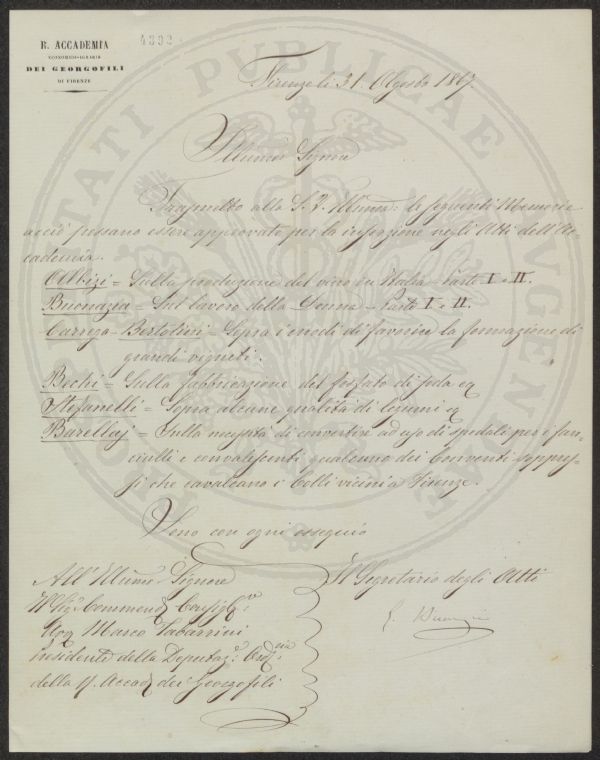 R. ACCADEMIA
ECONOMICO-AGRARIA
DEI GEORGOFILI
DI FIRENZE
Firenze li 31. Agosto 1867.
Illumo Signore
Trasmetto alla S. V. Illuma: le seguenti Memorie
acciò possano essere approvate per la inserzione negli Atti dell'Ac-
cademia.
Albizi = Sulla produzione del vino in Italia - Parte I e II.
Buonazia = Sul lavoro della Donna - Parte I e II.
Carrega-Bertolini = Sopra i modi di favorire la formazione di
grandi vigneti.
Bechi = Sulla fabbricazione del fosfato di soda
Stefanelli = Sopra alcune qualità di legumi
Barellaj = Sulla necessità di convertire ad uso di spedali per i fan-
ciulli e convalescenti qualcuno dei Conventi soppres-
si che cavalcano i Colli vicini a Firenze.
Sono con ogni ossequio
Il Segretario degli Atti
All'Illumo Signore
Il Sigr Commend Consigl
Marco Tabarrini
Presidente della Deputaz Ord
della R. Accad dei Georgofili
PROSPERITATI PUBLICAE AUGENDAE